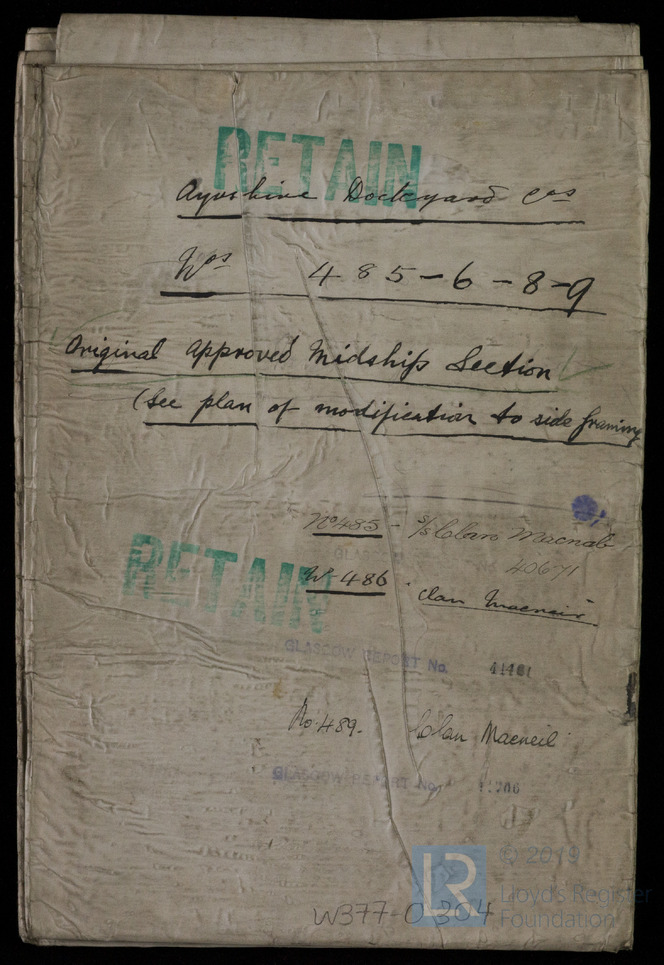 RETAIN
Ayrshire Dockyard Cos
Nos 485-6-8-9
Original Approved Midship Section
(See plan of modification to side framing
No 485 - S/S Clan Macnab
GLAS No 40671
No 486 Clan Macnair
RETAIN
GLASGOW REPORT No. 41161
No. 489. Clan Macneil
GLASGOW REPORT No.
W377-0304
LR
© 2019
Lloyd's Register
Foundation